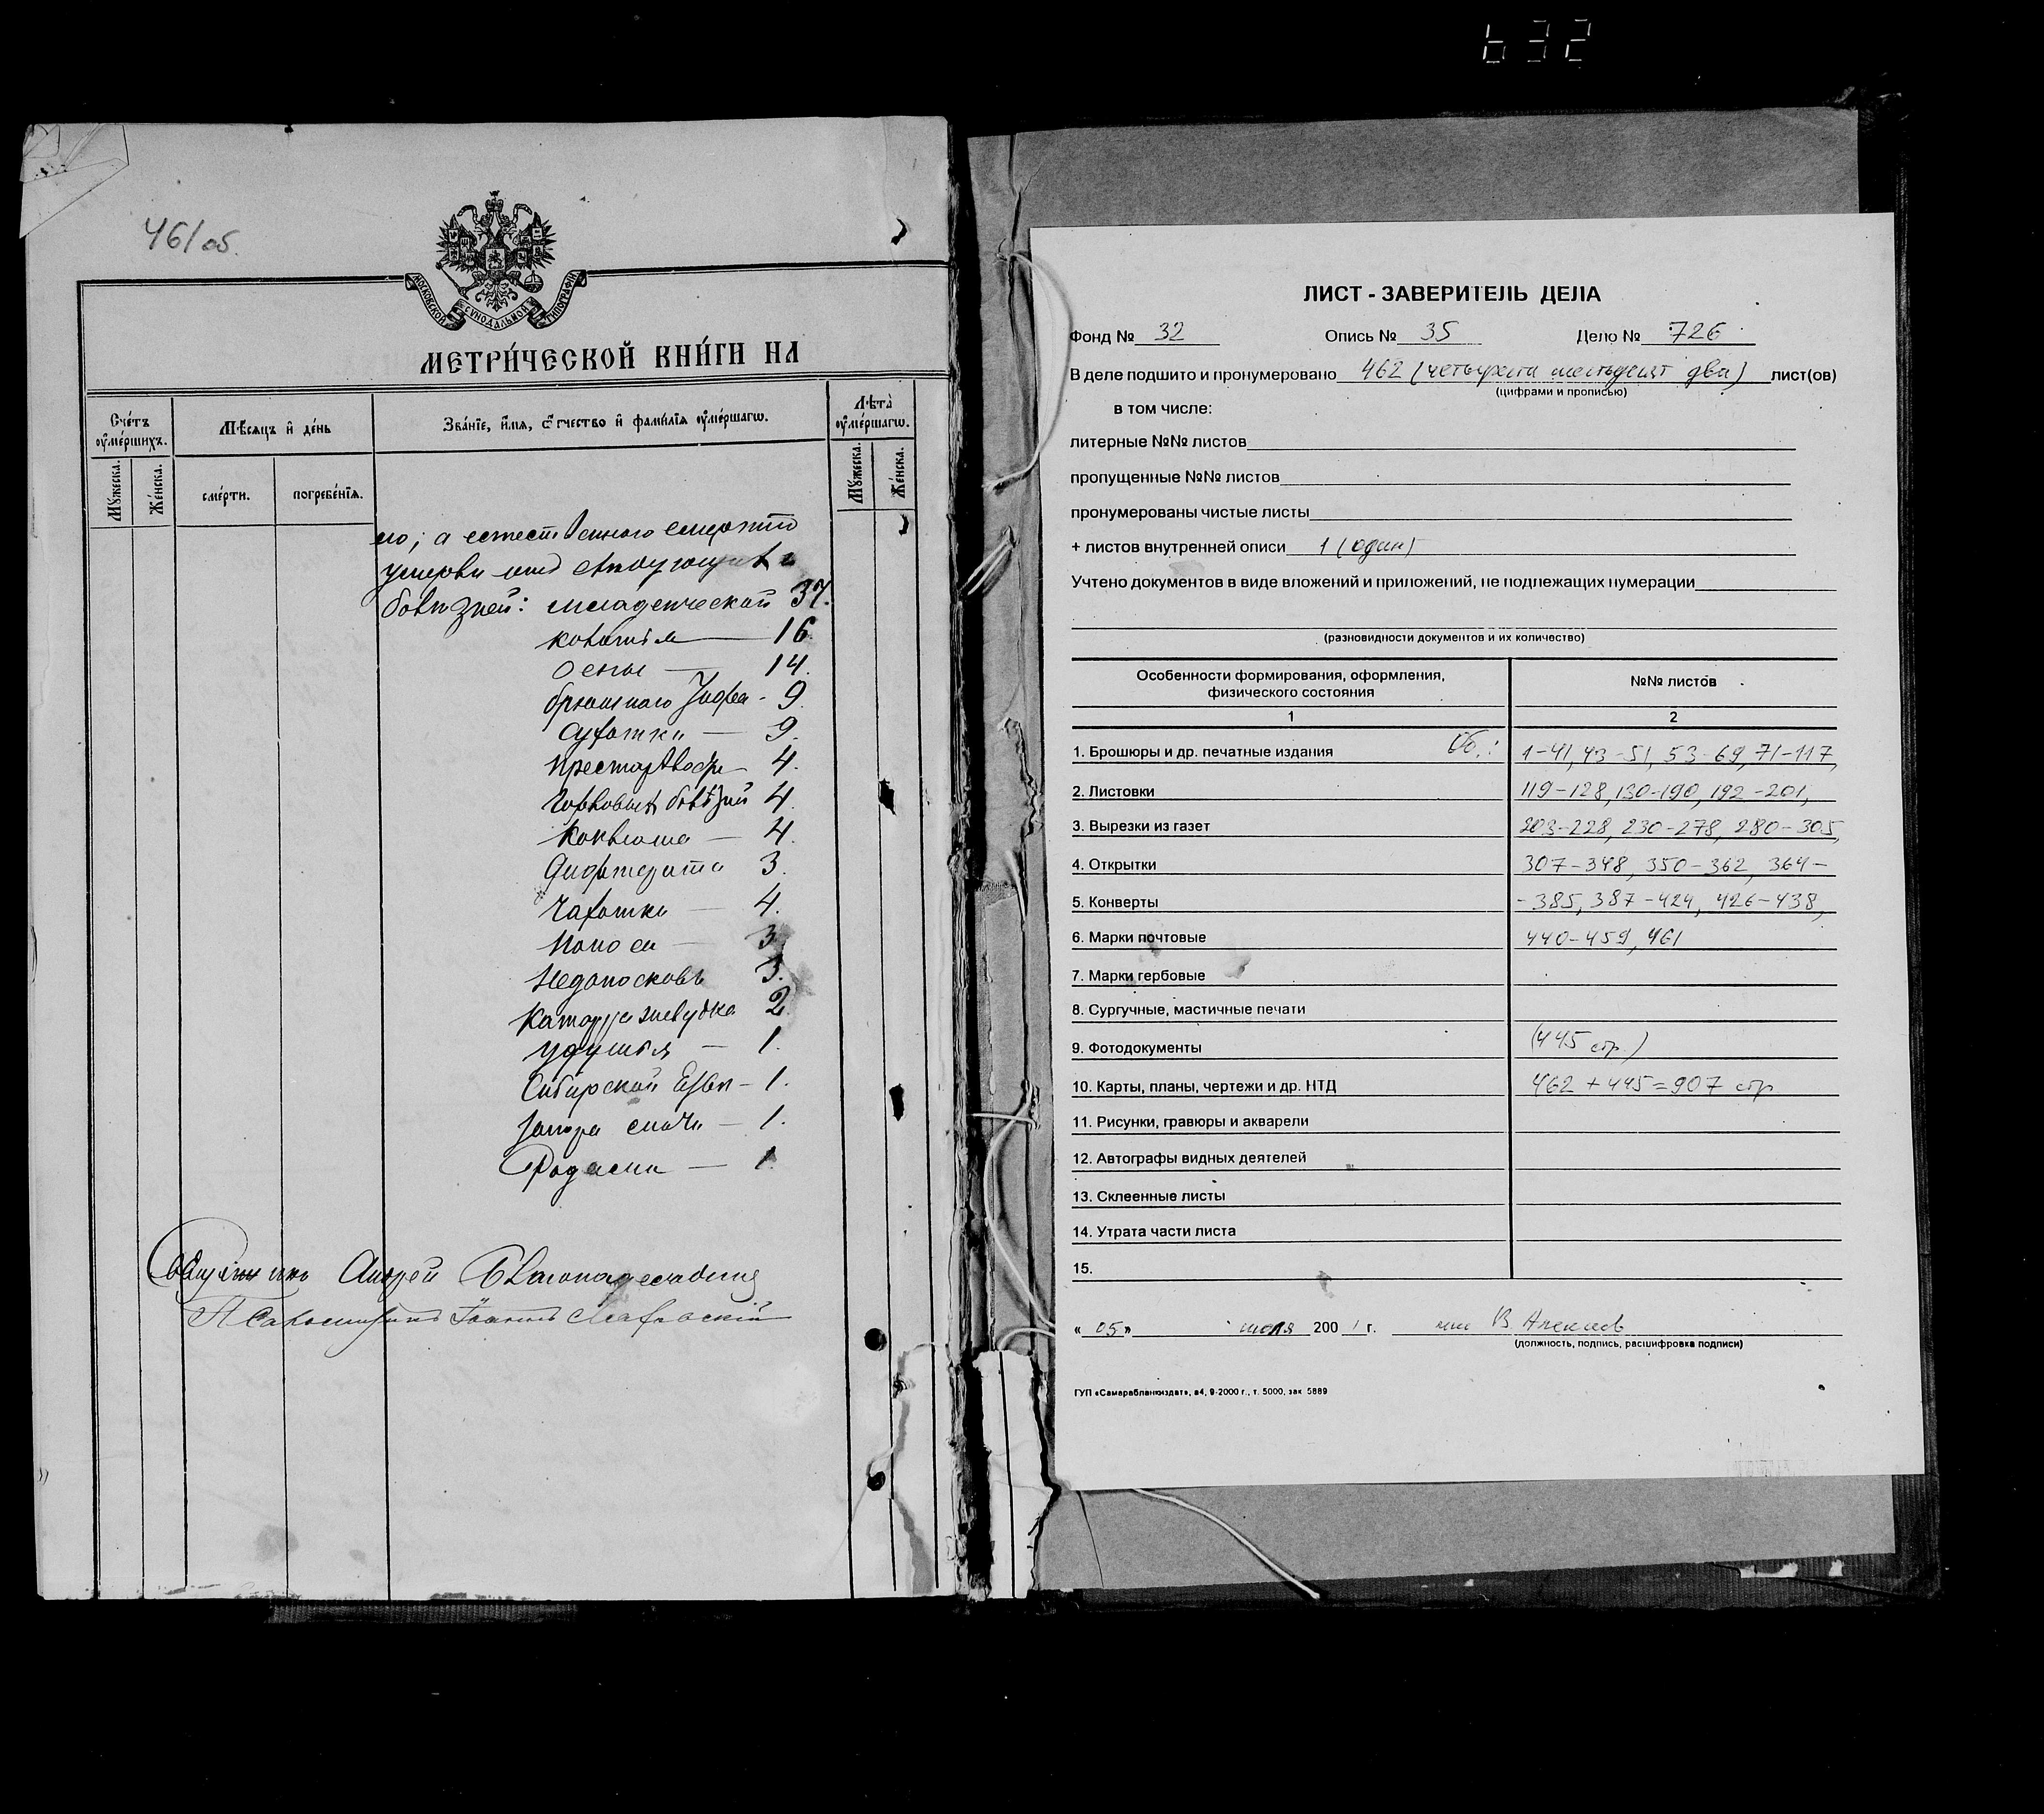 632
461 об.
МОСКОВСКОЙ СѴНОДАЛЬНОЙ ТИПОГРАФІИ
МЕТРИ́ЧЕСКОЙ КНИ́ГИ НА
Сче́тъ оу҆ме́ршихъ.
Мѣ́сяцъ и҆ де́нь
Зва́нїе, и҆́мя, ѻ҆́тчество и҆ фамѝлїя оу҆ме́ршагѡ.
Лѣ́та оу҆ме́ршагѡ.
Мꙋ́жеска.
Же́нска.
сме́рти.
погребе́нїя.
Мꙋ́жеска.
Же́нска.
но; а естественною смертію
умерли отъ слѣдующихъ
болѣзней: младенческой 37.
колотья — 16.
Оспы — 14.
брюшного Тифа - 9.
Сухотки — 9.
престарѣлости - 4.
Горловыхъ болѣзней 4.
Коклюша — 4.
Дифтерита 3.
Чахотки — 4.
Поноса — 3.
Недоносковъ 3.
Катарра желудка 2.
Удушья — 1.
Сибирской Язвы - 1.
Запора мочи — 1.
Родами — 1.
Священникъ Андрей
Псаломщикъ Іоаннъ
ЛИСТ - ЗАВЕРИТЕЛЬ ДЕЛА
Фонд № 32 Опись № 35 Дело № 726
В деле подшито и пронумеровано 462 (четыреста шестьдесят два) лист(ов)
(цифрами и прописью)
в том числе:
литерные №№ листов
пропущенные №№ листов
пронумерованы чистые листы
+ листов внутренней описи 1 (один)
Учтено документов в виде вложений и приложений, не подлежащих нумерации
(разновидности документов и их количество)
Особенности формирования, оформления, физического состояния
№№ листов
1 2
1. Брошюры и др. печатные издания Об.: 1-41, 43-51, 53-69, 71-117,
2. Листовки 119-128, 130-190, 192-201,
3. Вырезки из газет 203-228, 230-278, 280-305,
4. Открытки 307-348, 350-362, 364-
5. Конверты -385, 387-424, 426-438,
6. Марки почтовые 440-459, 461
7. Марки гербовые
8. Сургучные, мастичные печати
9. Фотодокументы (445 стр.)
10. Карты, планы, чертежи и др. НТД 462 + 445 = 907 стр
11. Рисунки, гравюры и акварели
12. Автографы видных деятелей
13. Склеенные листы
14. Утрата части листа
15.
« 05 » июля 2001 г. В.
(должность, подпись, расшифровка подписи)
ГУП «Самарабланкиздат», а4, 9-2000 г., т. 5000, зак 5889